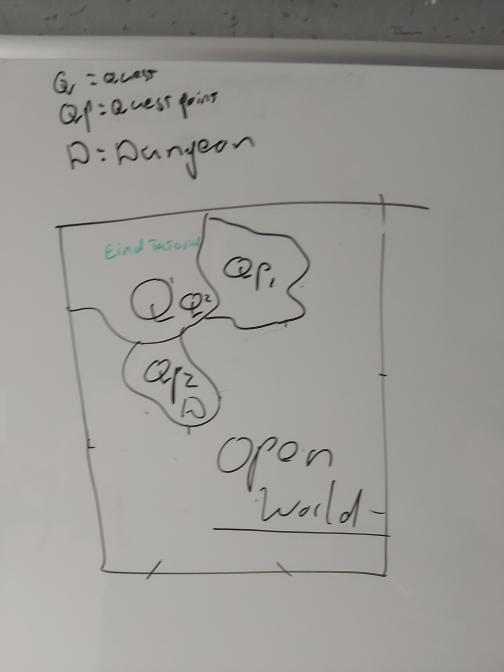 Q = Quest
Qp = Quest point
D = Dungeon
Eind Tutorial
Qp1
Q1
Q2
Qp2
D
Open
World